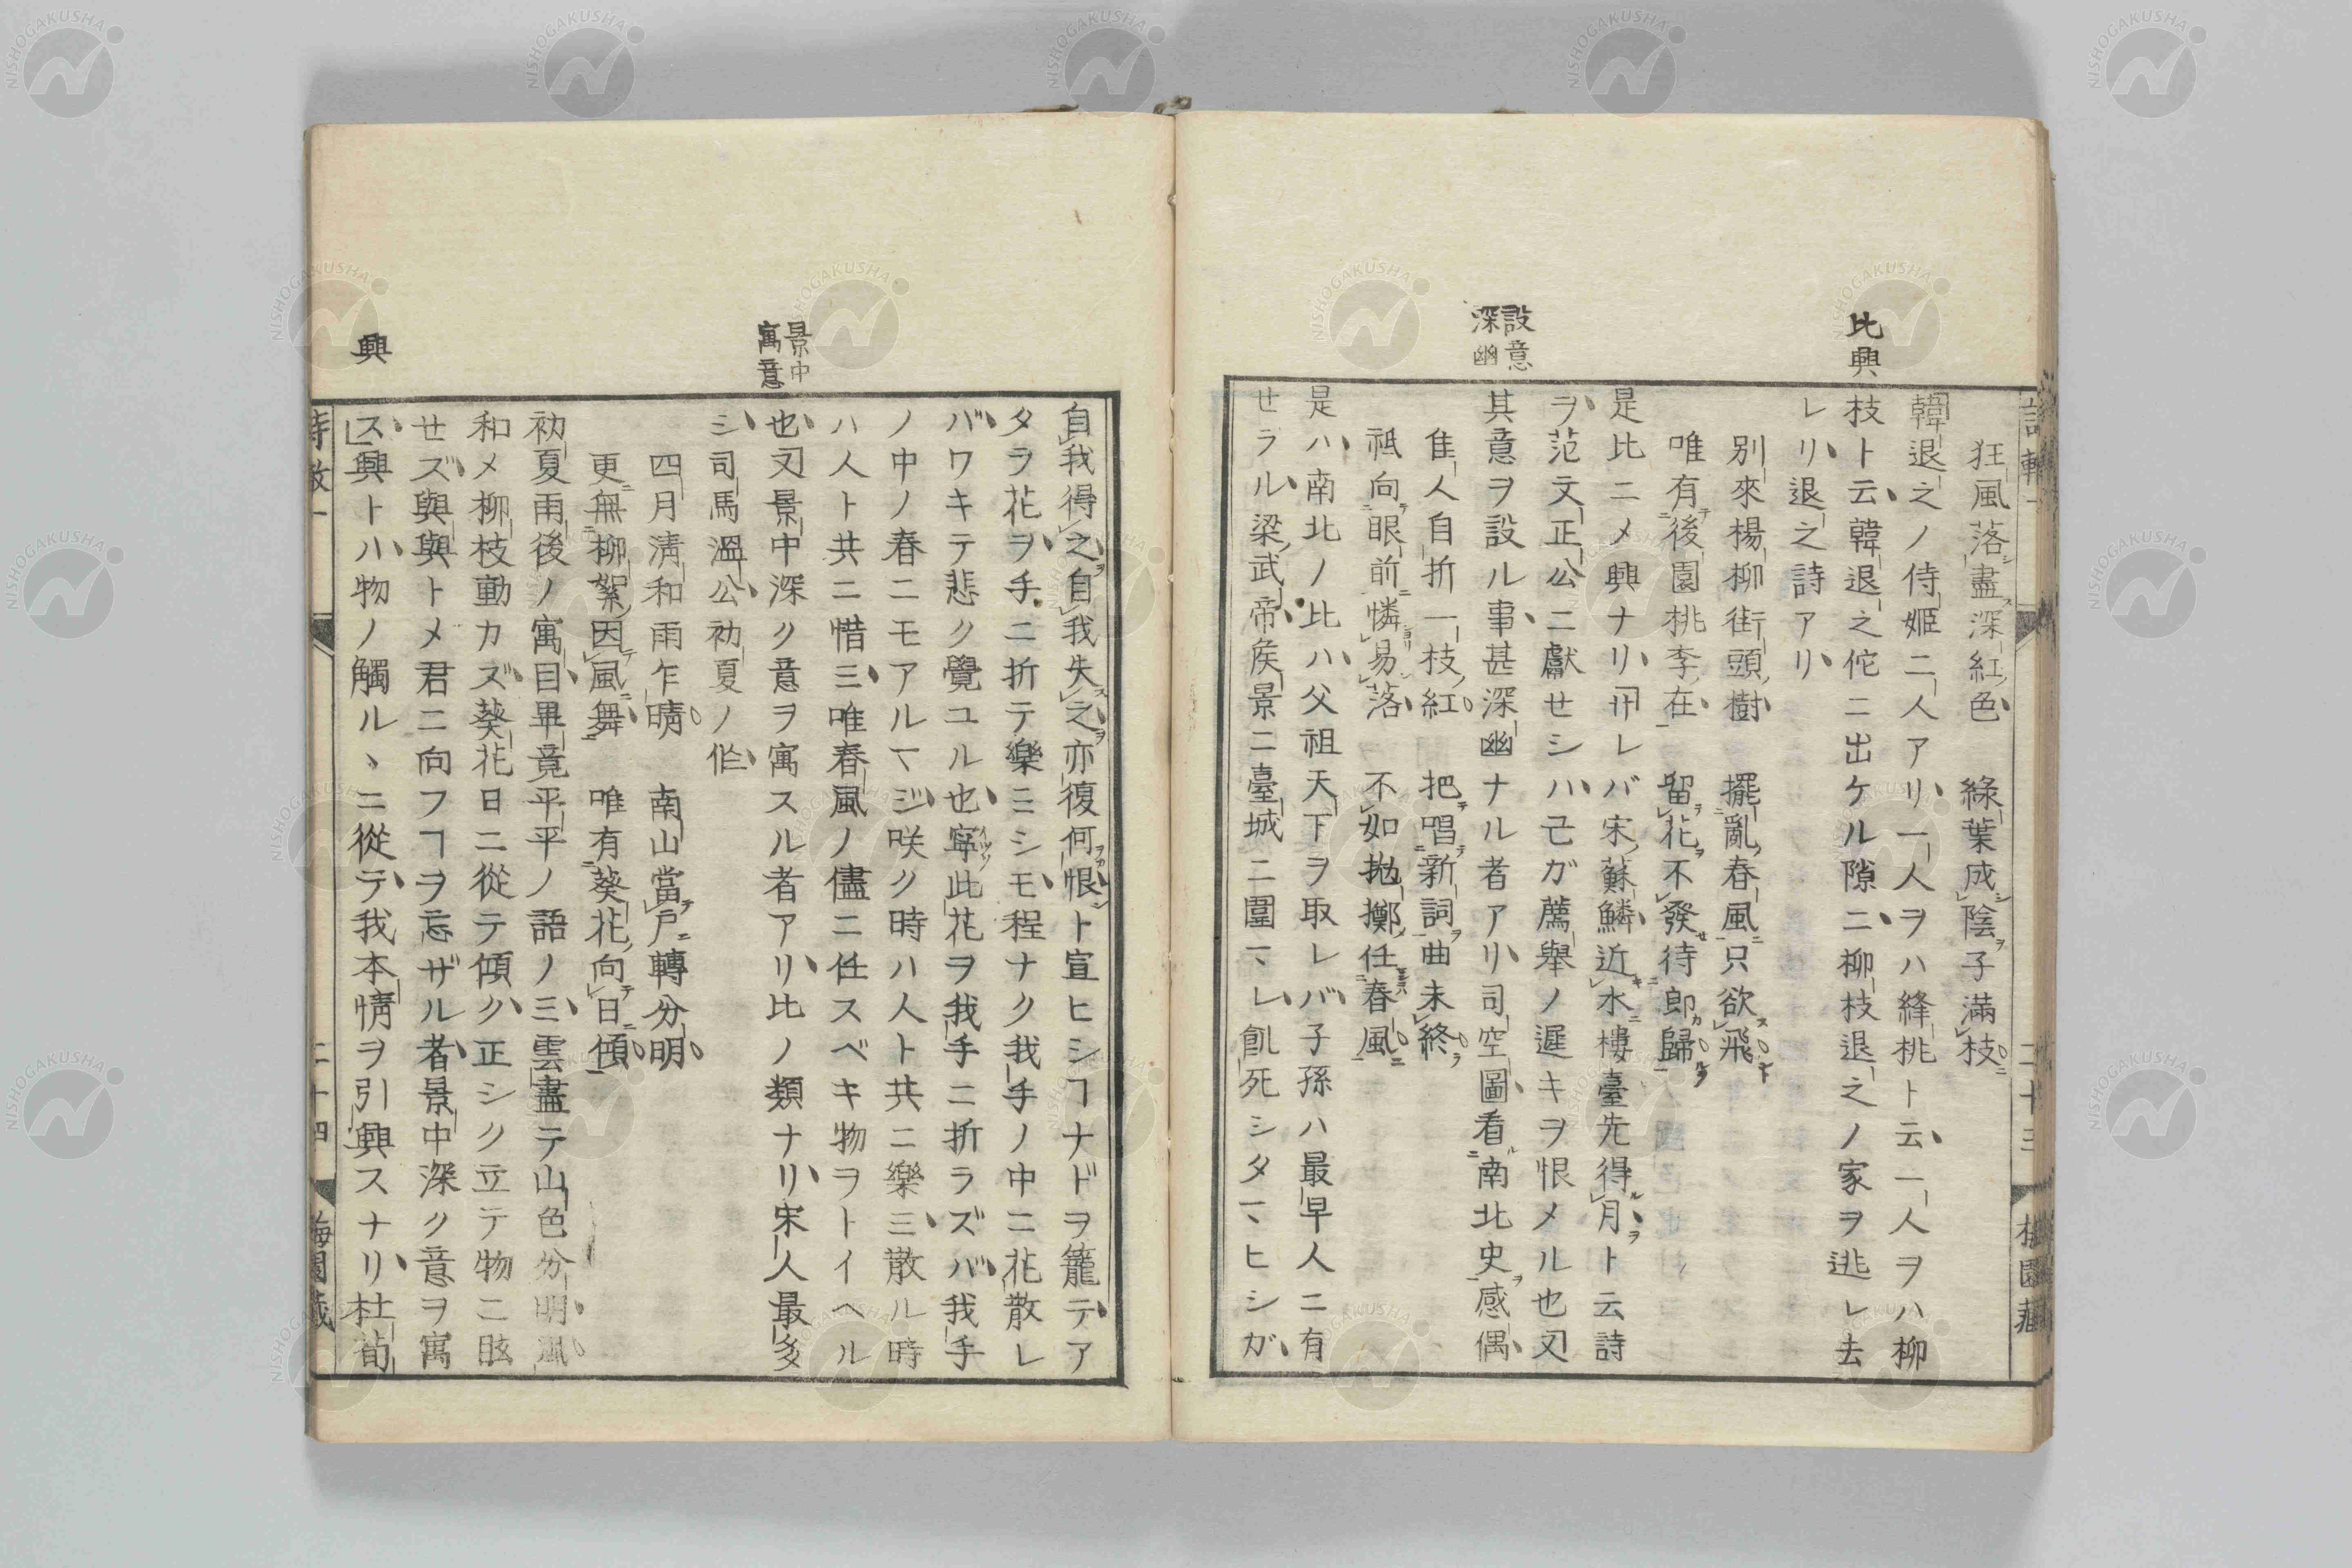 比興
設意
深幽
狂風落盡深紅色 綠葉成陰子滿枝
韓退之ノ侍姬二人アリ一人ヲハ絳桃ト云一人ヲハ柳
枝ト云韓退之佗ニ出ケル隙ニ柳枝退之ノ家ヲ逃レ去
レリ退之詩アリ
別來楊柳街頭樹 擺亂春風只欲飛
唯有後園桃李在 留花不發待郎歸
是比ニメ興ナリサレバ宋蘇鱗近水樓臺先得月ト云詩
ヲ范文正公ニ獻セシハ己ガ薦擧ノ遲キヲ恨メル也又
其意ヲ設ル事甚深幽ナル者アリ司空圖看南北史感偶
隹人自折一枝紅 把唱新詞曲未終
祗向眼前憐易落 不如拋擲任春風
是ハ南北ノ比ハ父祖天下ヲ取レバ子孫ハ最早人ニ有
セラル梁武帝矦景ニ臺城ニ圍マレ飢死シタマヒシガ
二十三
梅園藏
景中
寓意
興
自我得之自我失之亦復何恨ト宣ヒシヿナドヲ籠テア
タラ花ヲ手ニ折テ樂ミシモ程ナク我手ノ中ニ花散レ
バワキテ悲ク覺ユル也寧此花ヲ我手ニ折ラズバ我手
ノ中ノ春ニモアルマジ咲ク時ハ人ト共ニ樂三散ル時
ハ人ト共ニ惜三唯春風ノ儘ニ任スベキ物ヲトイヘル
也又景中深ク意ヲ寓スル者アリ比ノ類ナリ宋人最多
シ司馬溫公初夏ノ作
四月淸和雨乍晴 南山當戶轉分明
更無柳絮因風舞 唯有葵花向日傾
初夏雨後ノ寓目畢竟平平ノ語ノ三雲盡テ山色分明風
和メ柳枝動カズ葵花日ニ從テ傾ク正シク立テ物ニ眩
セズ與與トメ君ニ向フヿヲ忘ザル者景中深ク意ヲ寓
ス興トハ物ノ觸ルヽニ從テ我本情ヲ引興スナリ杜荀
詩轍一
二十四
梅園藏
NISHOGAKUSHA